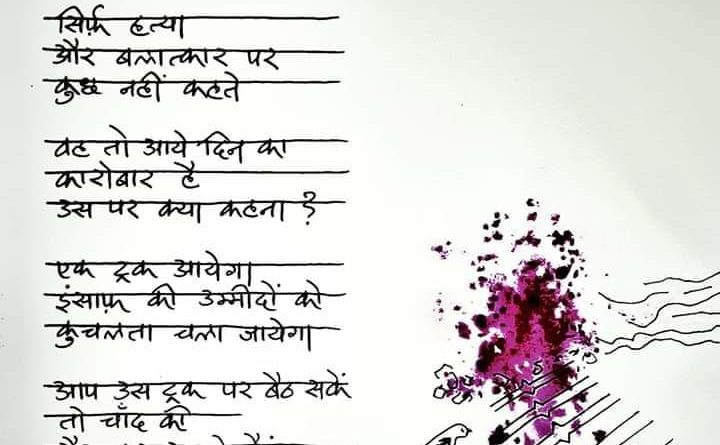 सिर्फ़ हत्या
और बलात्कार पर
कुछ नहीं कहते
वह तो आये दिन का
कारोबार है
उस पर क्या कहना ?
एक ट्रक आयेगा
इंसाफ़ की उम्मीदों को
कुचलता चला जायेगा
आप उस ट्रक पर बैठ सकें
तो चाँद की